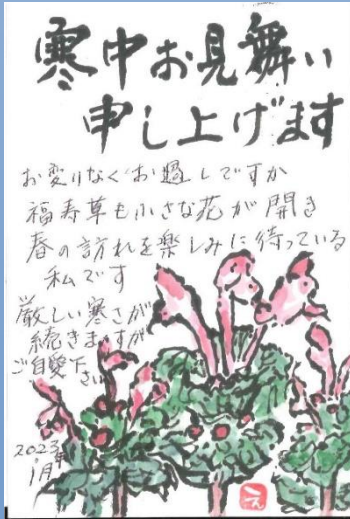 寒中お見舞い
申し上げます
お変りなくお過しですか
福寿草も小さな花が開き
春の訪れを楽しみに待っている
私です
厳しい寒さが
続きますが
ご自愛下さい
2023年
1月